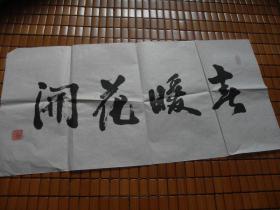 春暖花開